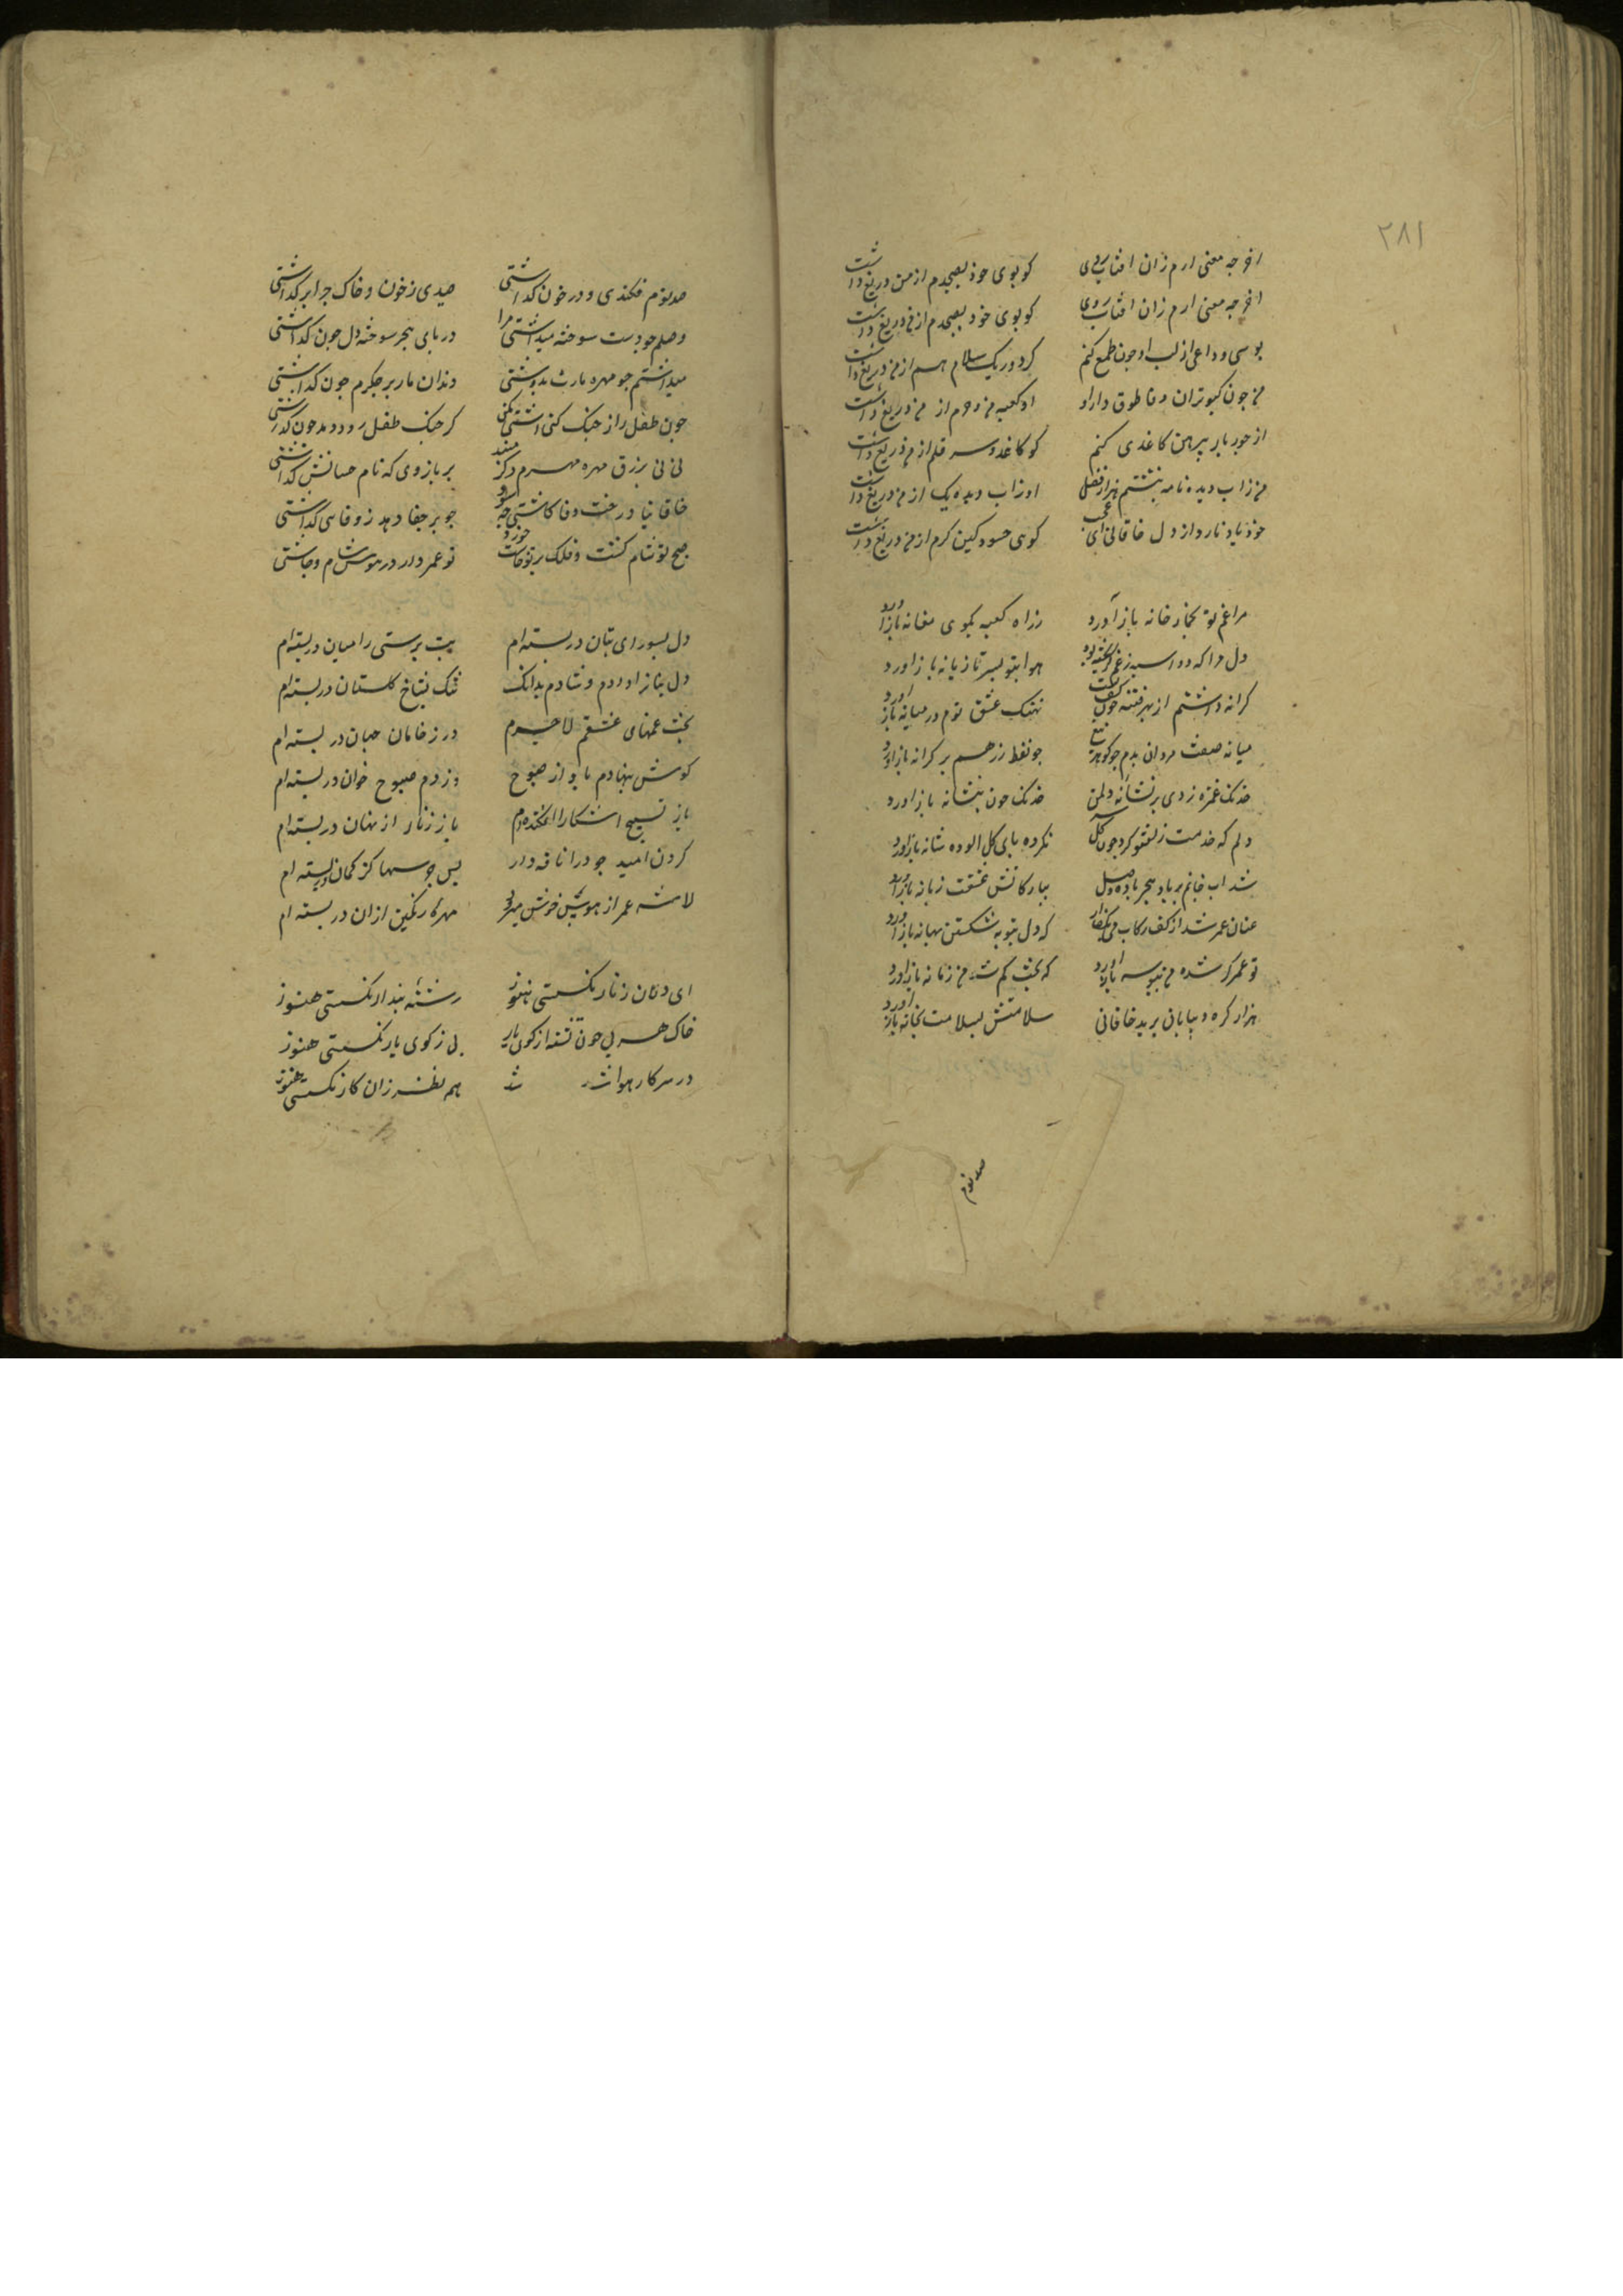 ۲۸۱
آخر چه معنی ارم زان افتاب روی کو بوی خود بصبحدم از من دریغ داشت
آخر چه معنی ارم زان افتاب روی کو بوی خود بصبحدم از من دریغ داشت
بوسی وداعی از لب او چون طمع کنم کز دور یک سلام هم از من دریغ داشت
من چون کبوتران وفا طوق دار او او کعبه من و حرم از من دریغ داشت
از جور یار پیرهن کاغذی کنم کو کاغذ و سر قلم از من دریغ داشت
من ز اب دیده نامه نبشتم هزار فصل او ز اب دیده یک از من دریغ داشت
خود یاد نارد از دل خاقانی ای عجب کوی حسود کین کرم از من دریغ داشت
مرا غم تو بخمار خانه باز آورد ز راه کعبه بکوی مغانه باز اورد
دل مرا که دو اسبه ز غم گریخته بود هوا بتو بسر تازیانه باز اورد
کرانه داشتم از بهر فتنه چون کشف نهنک عشق توم در میانه باز اورد
میانه صف مردان بدم چو کوهر تیغ چو نقط زرهم بر کرانه باز اورد
خدنک غمزه زدی بر نشانه دل من خدنک خون بنشانه باز اورد
دلم که خدمت زلف تو کرد چون کل نکرده پای کل الوده شانه باز اورد
شد اب خانم بر باد هجر باده وصل بیار کاتش عشقت زبانه باز اورد
عنان عمر شد از کف رکاب می بکف ار که دل بتوبه شکستن بهانه باز اورد
تو عمر کم شده من ببوسه باز اورد که بخت کم شده من زمانه باز اورد
هزار کره و بیابان برید خاقانی سلامتش بسلامت بخانه باز اورد
صید توم
صید توم فکندی و در خون کداشتی صیدی ز خون و خاک چرا بر کداشتی
وصلم چو دست سوخته میداشتی مرا در پای هجر سوخته دل چون کداشتی
میداشتم چو مهره مارت بدوشتی دندان مار بر جکرم چون کداشتی
چون طفل را ز جنک کنی اشتی مکن
نی نی بزرق مهره مهرم دکر مبند بر بازوی که نام حسانش کداشتی
خاقانیا درخت وفا کاشتی چه سود چو بر جفا دهد ز وفا سی کداشتی
صبح تو شام کشت و فلک بر تو چاشت خورد تو عمر در هوس شام و چاشتی
دل بسودای بتان در بسته ام بت پرستی را میان در بسته ام
دل بناز اوردم و شادم بدانک ننک بشاخ کلستان در بسته ام
بخت غمهای عشقم لاجرم در ز خامان جهان در بسته ام
کوش بنهادم باواز صبوح وز دم صبوح خوان در بسته ام
باز تسبیح اشکارا افکنده ام باز زنار از نهان در بسته ام
کردن امید چو درا ناقه وار بس جرسها کز کمان در بسته ام
لاشه عمر از هوس خوش میرود مهرکا رنکین از ان در بسته ام
ای دل ان زنار نکسستی هنوز رشته پندار نکسستی هنوز
خاک هر پی خون تست از کوی یار پی ز کوی یار نکسستی هنوز
در سر کار هوا شد هم نظر زان کار نکسستی هنوز